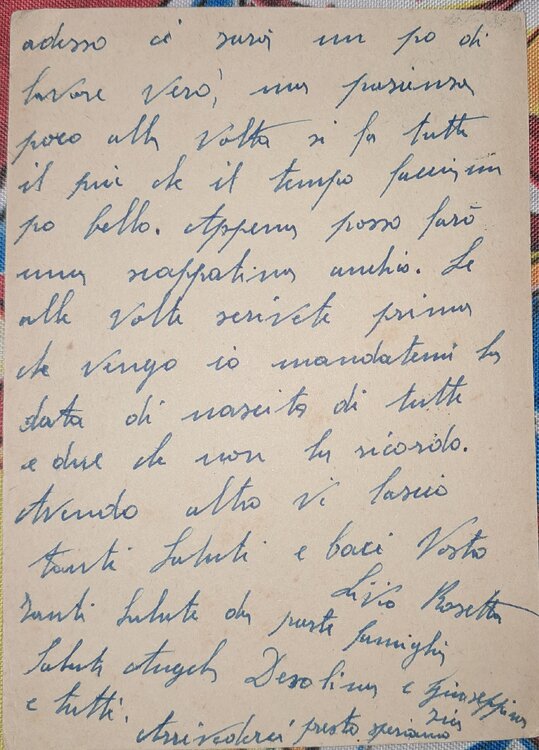 adesso ci sarà un po di
lavore vero, ma pasiensa
poco alla volta si fa tutte
il piu che il tempo faccia un
po bello. Appena posso farò
una scappatina anchio. Se
alle volte scrivete prima
che vengo io mandatemi la
data di nascita di tutti
e due che non la ricordo.
Avendo altro vi lascio
tanti saluti e baci Vosto
Livio Rosetta
Tanti Salute da parte famiglia
Salute Angela Desolina e Giuseppina
e tutti. zia
Arrivederci presto speriamo